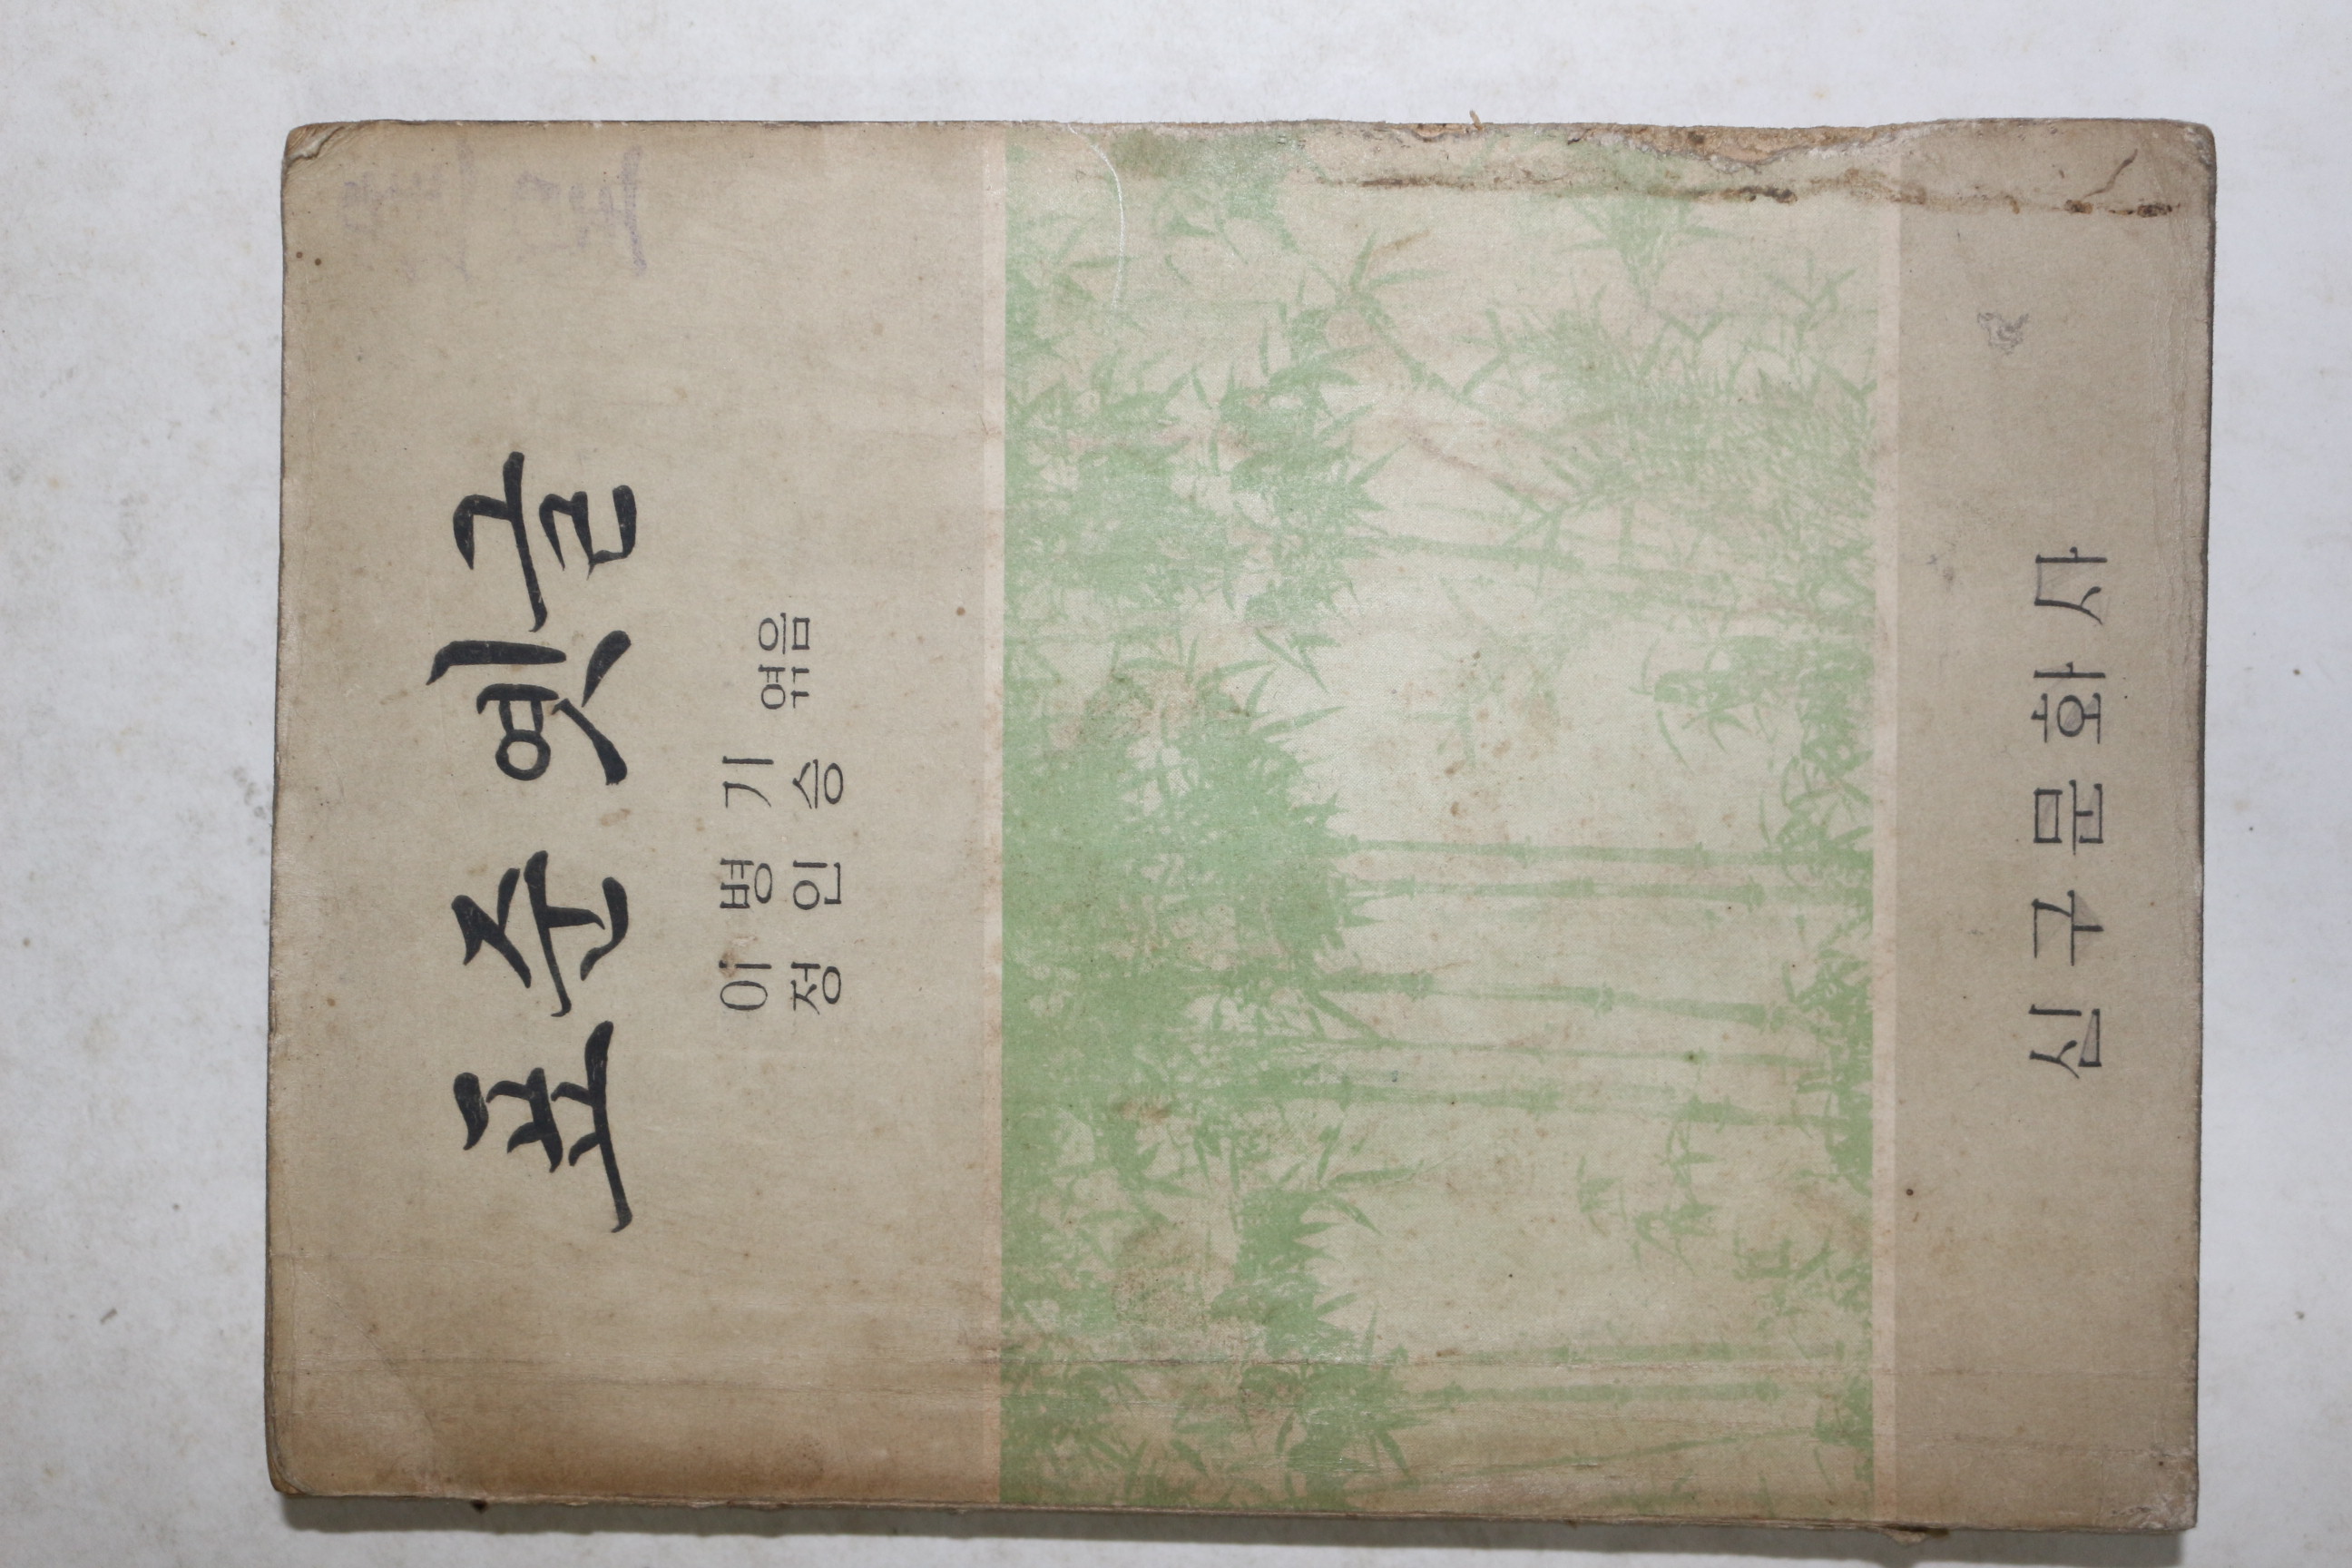 표준 옛글
이병기
정인승
엮음
신구문화사